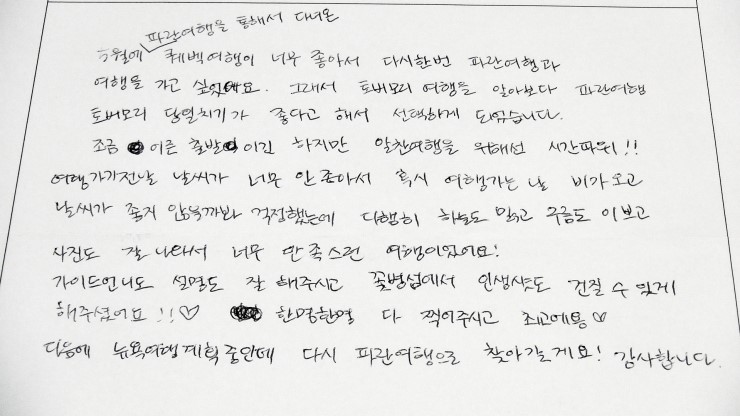 파란여행을 통해서 다녀온
5월에 퀘백여행이 너무 좋아서 다시한번 파란여행과
여행을 가고 싶었에요. 그래서 토버모리 여행을 알아보다 파란여행
토버모리 당일치기가 좋다고 해서 선택하게 되었습니다.
조금 이른 출발 이긴 하지만 알찬여행을 위해선 시간파워!!
여행가기전날 날씨가 너무 안좋아서 혹시 여행가는 날 비가오고
날씨가 좋지 않을까봐 걱정했는데 다행히 하늘도 맑고 구름도 이쁘고
사진도 잘 나와서 너무 만족스런 여행이었어요!
가이드언니도 설명도 잘 해주시고 꽃병섬에서 인생샷도 건질 수 있게
해주셨어요!!♡ 한명한명 다 찍어주시고 최고에용♡
다음에 뉴욕여행 계획중인데 다시 파란여행으로 찾아갈게요! 감사합니다.